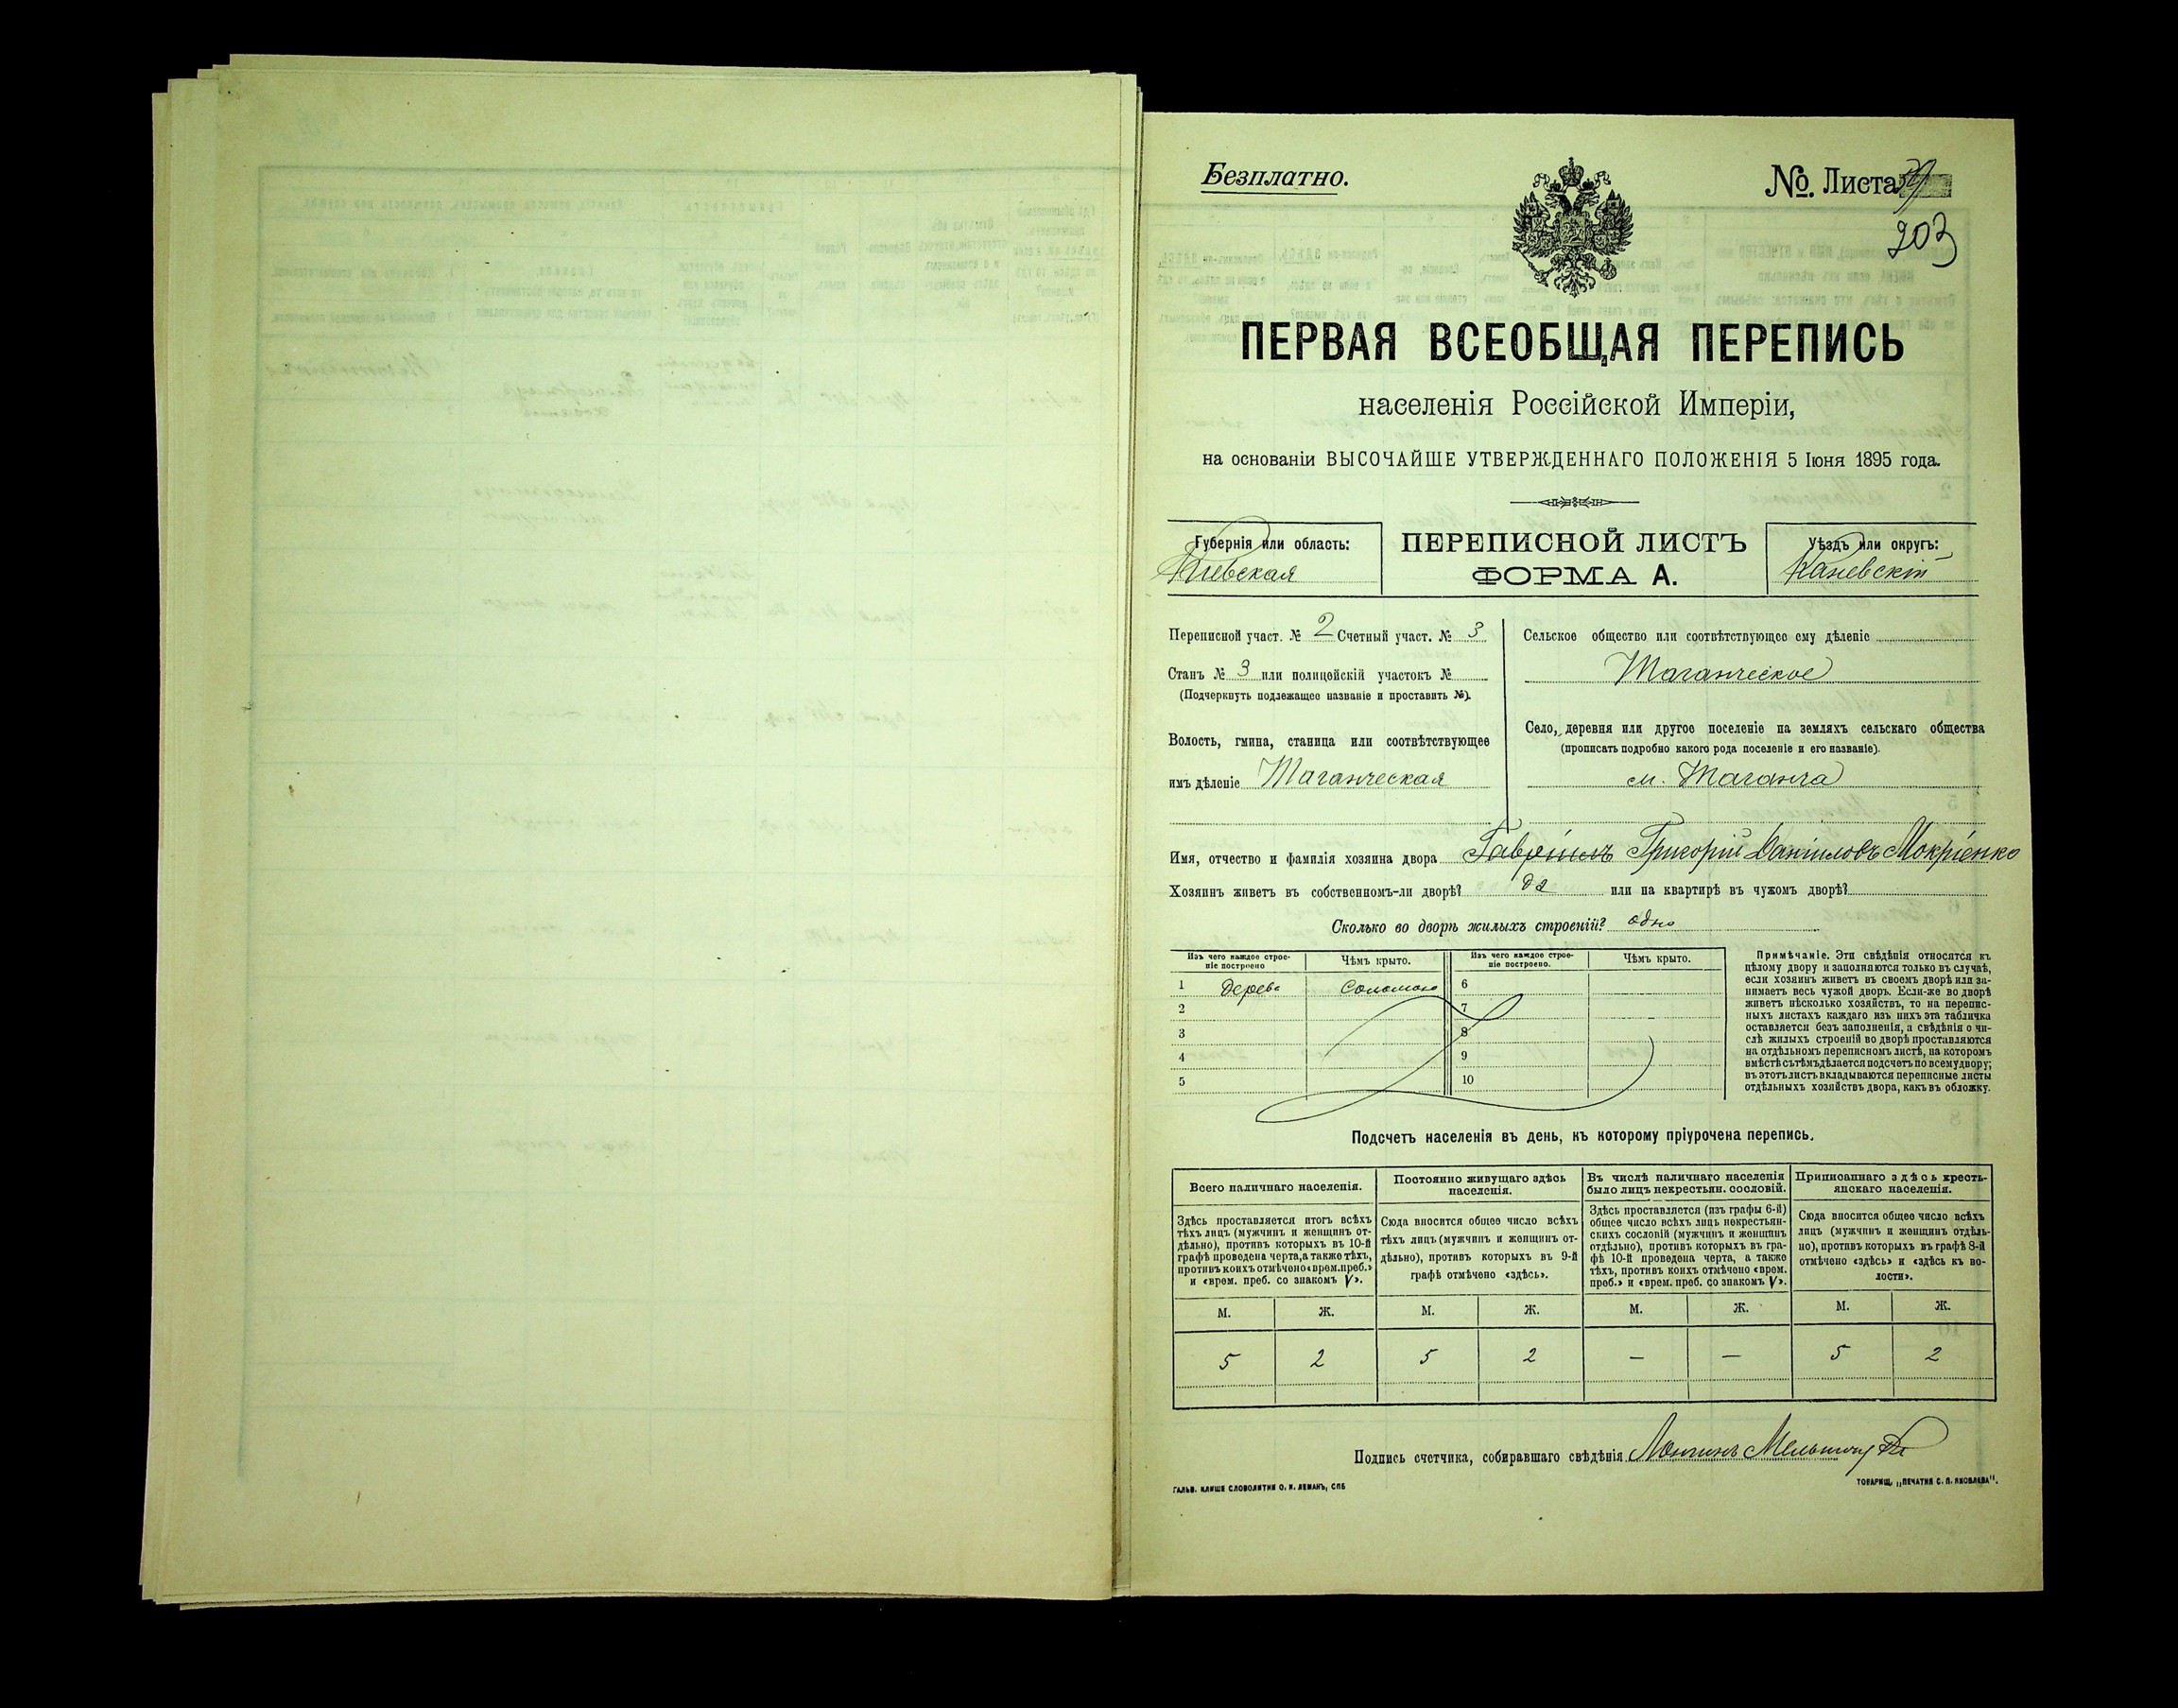 Безплатно.
№ Листа
203
ПЕРВАЯ ВСЕОБЩАЯ ПЕРЕПИСЬ
населенія Россійской Имперіи,
на основаніи ВЫСОЧАЙШЕ УТВЕРЖДЕННАГО ПОЛОЖЕНІЯ 5 Іюня 1895 года.
Губернія или область:
Кіевская
ПЕРЕПИСНОЙ ЛИСТЪ
ФОРМА А.
Уѣздъ или округъ:
Каневскій
Переписной участ. № 2 Счетный участ. № 3
Станъ № 3 или полицейскій участокъ №
(Подчеркнуть подлежащее названіе и проставить №).
Волость, гмина, станица или соотвѣтствующее
имъ дѣленіе Таганческая
Сельское общество или соотвѣтствующее ему дѣленіе
Таганческое
Село, деревня или другое поселеніе на земляхъ сельскаго общества
(прописать подробно какого рода поселеніе и его названіе).
м. Таганча
Имя, отчество и фамилія хозяина двора Гавріилъ Григорій Даніиловъ Мокріенко
Хозяинъ живетъ въ собственномъ-ли дворѣ? да или на квартирѣ въ чужомъ дворѣ?
Сколько во дворѣ жилыхъ строеній? одно
Изъ чего каждое строе-
ніе построено
Чѣмъ крыто.
Изъ чего каждое строе-
ніе построено.
Чѣмъ крыто.
1 Дерева Соломою 6
2 7
3 8
4 9
5 10
Примѣчаніе. Эти свѣдѣнія относятся къ
цѣлому двору и заполняются только въ случаѣ,
если хозяинъ живетъ въ своемъ дворѣ или за-
нимаетъ весь чужой дворъ. Если-же во дворѣ
живетъ нѣсколько хозяйствъ, то на перепис-
ныхъ листахъ каждаго изъ нихъ эта табличка
оставляется безъ заполненія, а свѣдѣнія о чи-
слѣ жилыхъ строеній во дворѣ проставляются
на отдѣльномъ переписномъ листѣ, на которомъ
вмѣстѣ съ тѣмъ дѣлается подсчетъ по всему двору;
въ этотъ листъ вкладываются переписные листы
отдѣльныхъ хозяйствъ двора, какъ въ обложку.
Подсчетъ населенія въ день, къ которому пріурочена перепись.
Всего наличнаго населенія.
Здѣсь проставляется итогъ всѣхъ
тѣхъ лицъ (мужчинъ и женщинъ от-
дѣльно), противъ которыхъ въ 10-й
графѣ проведена черта, а также тѣхъ,
противъ коихъ отмѣчено «врем. преб.»
и «врем. преб. со знакомъ V».
Постоянно живущаго здѣсь
населенія.
Сюда вносится общее число всѣхъ
тѣхъ лицъ (мужчинъ и женщинъ от-
дѣльно), противъ которыхъ въ 9-й
графѣ отмѣчено «здѣсь».
Въ числѣ наличнаго населенія
было лицъ некрестьян. сословій.
Здѣсь проставляется (изъ графы 6-й)
общее число всѣхъ лицъ некрестьян-
скихъ сословій (мужчинъ и женщинъ
отдѣльно), противъ которыхъ въ гра-
фѣ 10-й проведена черта, а также
тѣхъ, противъ коихъ отмѣчено «врем.
преб.» и «врем. преб. со знакомъ V».
Приписаннаго здѣсь кресть-
янскаго населенія.
Сюда вносится общее число всѣхъ
лицъ (мужчинъ и женщинъ отдѣль-
но), противъ которыхъ въ графѣ 8-й
отмѣчено «здѣсь» и «здѣсь къ во-
лости».
М. Ж. М. Ж. М. Ж. М. Ж.
5 2 5 2 — — 5 2
Подпись счетчика, собиравшаго свѣдѣнія
ГАЛЬВ. КЛИШЕ СЛОВОЛИТНИ О. И. ЛЕМАНЪ, СПБ
ТОВАРИЩ. „ПЕЧАТНЯ С. П. ЯКОВЛЕВА".